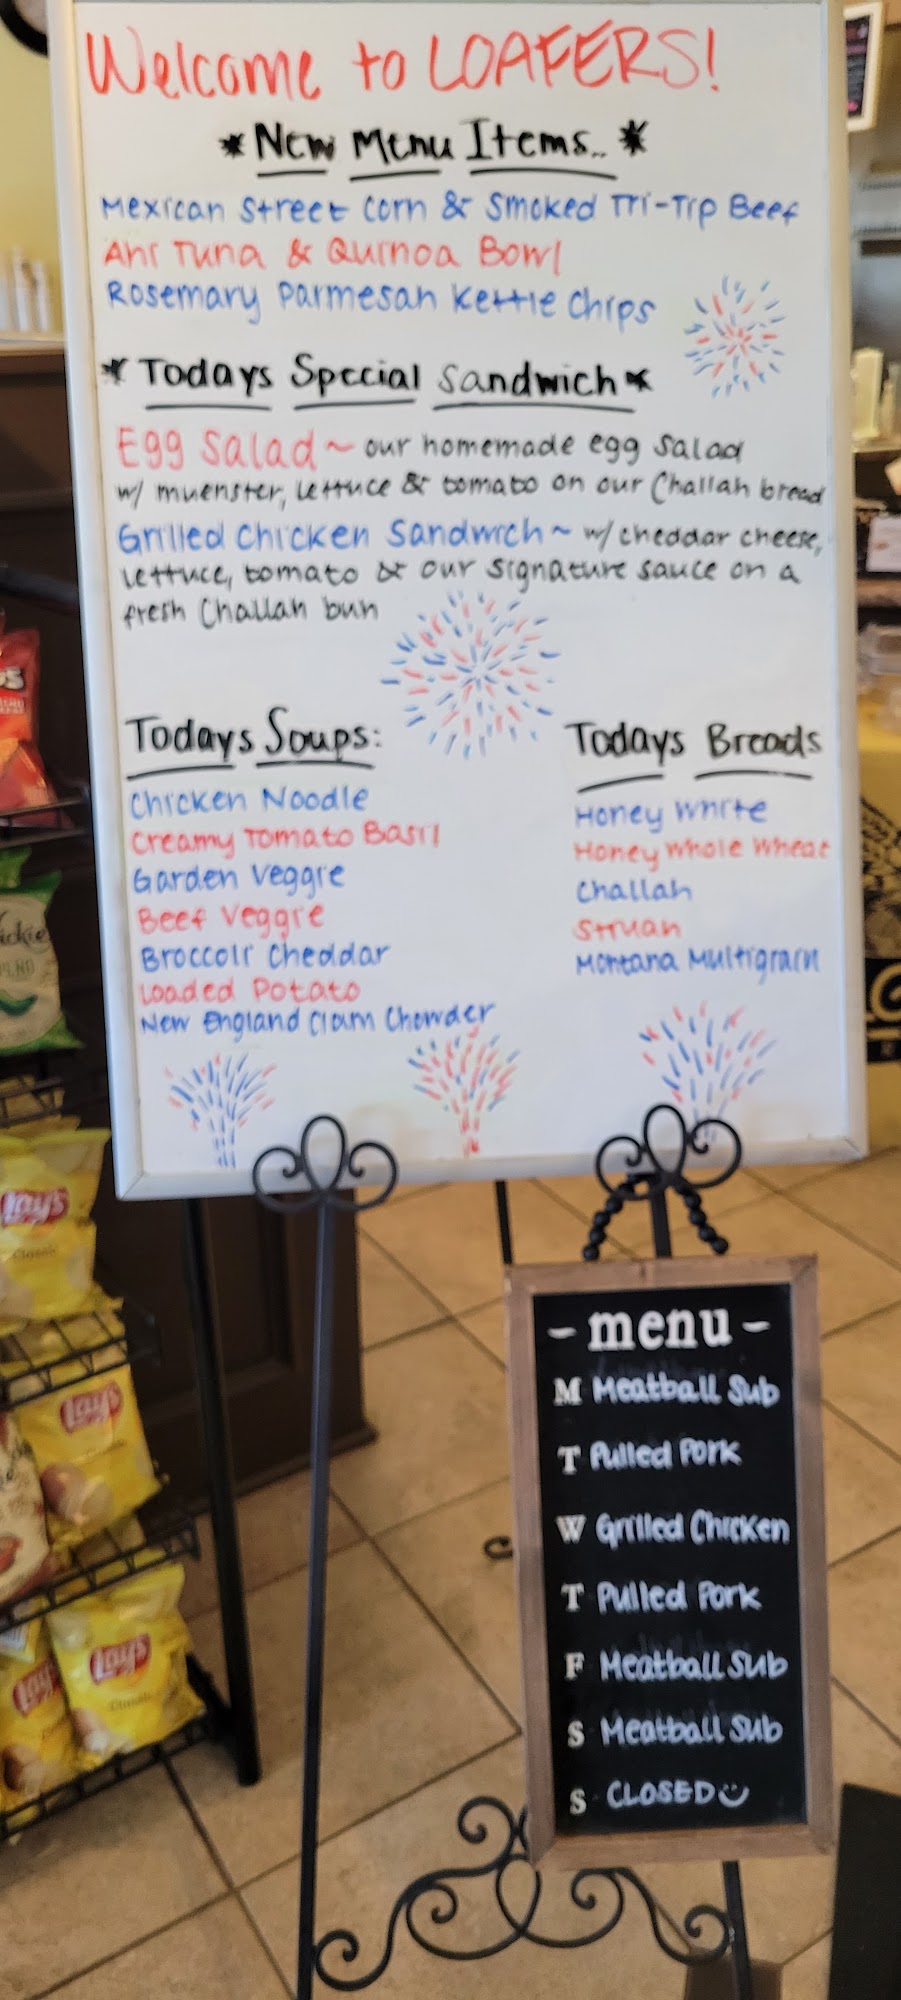 Welcome to LOAFERS!
* New Menu Items.. *
Mexican Street Corn & Smoked Tri-Tip Beef
Ahi Tuna & Quinoa Bowl
Rosemary Parmesan Kettle Chips
* Todays Special Sandwich *
Egg Salad ~ our homemade egg salad
w/ muenster, lettuce & tomato on our Challah bread
Grilled Chicken Sandwich ~ w/ cheddar cheese,
lettuce, tomato & our signature sauce on a
fresh Challah bun
Todays Soups:
Chicken Noodle
Creamy Tomato Basil
Garden Veggie
Beef Veggie
Broccoli Cheddar
Loaded Potato
New England Clam Chowder
Todays Breads
Honey White
Honey Whole Wheat
Challah
Struan
Montana Multigrain
- menu -
M Meatball Sub
T Pulled Pork
W Grilled Chicken
T Pulled Pork
F Meatball Sub
S Meatball Sub
S CLOSED
Lay's
Classic
Lay's
Lay's
Classic
Lay's